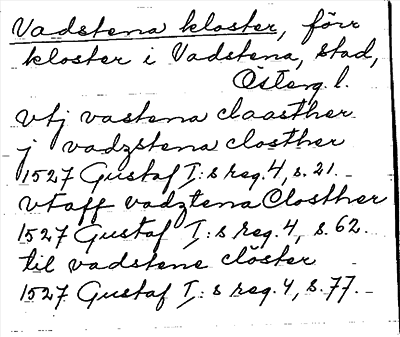 Vadstena kloster, förr
kloster i Vadstena, stad,
Österg. l.
vtj vastena claasther
j vadzstena closther
1527 Gustaf I:s reg. 4, s. 21.
vtaff vadztena Closther
1527 Gustaf I:s reg. 4, s. 62.
til vadstene clöster
1527 Gustaf I:s reg. 4, s. 77.